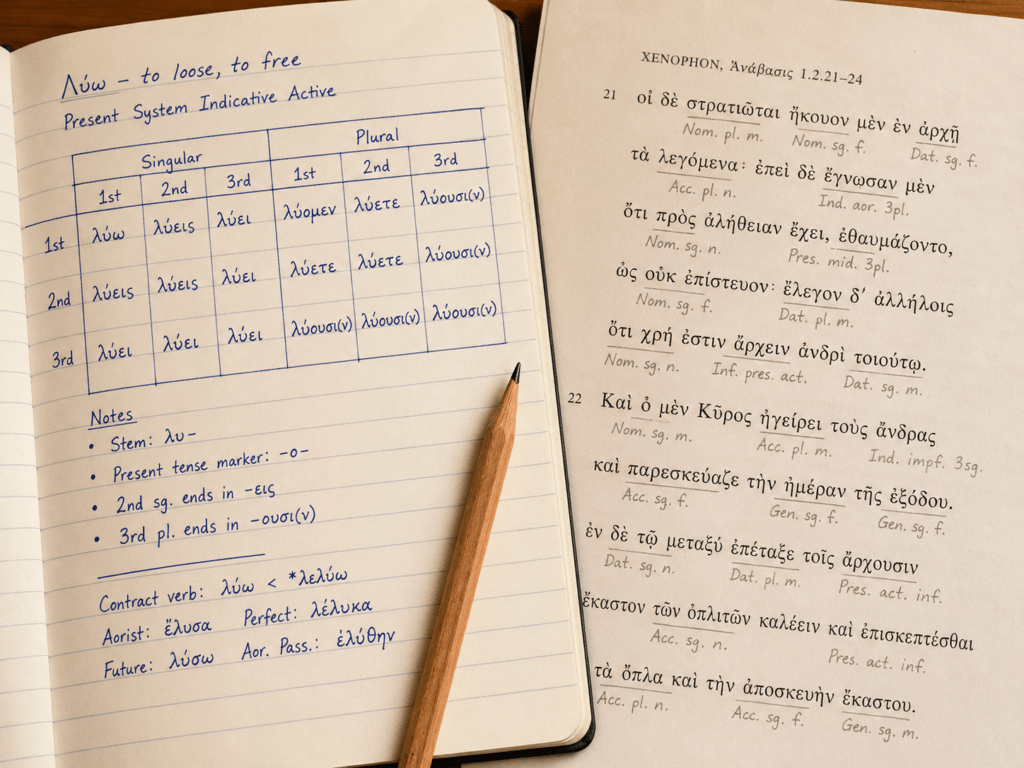 Λύω – to loose, to free
Present System Indicative Active
Singular Plural
1st 2nd 3rd 1st 2nd 3rd
1st λύω λύεις λύει λύομεν λύετε λύουσι(ν)
2nd λύεις λύεις λύει λύετε λύετε λύουσι(ν)
3rd λύει λύει λύει λύουσι(ν) λύουσι(ν) λύουσι(ν)
Notes
• Stem: λυ–
• Present tense marker: -ο-
• 2nd sg. ends in -εις
• 3rd pl. ends in -ουσι(ν)
Contract verb: λύω < *λελύω
Aorist: ἔλυσα Perfect: λέλυκα
Future: λύσω Aor. Pass.: ἐλύθην
XENOPHON, Ἀνάβασις 1.2.21–24
21 οἱ δὲ στρατιῶται ἤκουον μὲν ἐν ἀρχῇ
Nom. pl. m. Nom. sg. f. Dat. sg. f.
τὰ λεγόμενα· ἐπεὶ δὲ ἔγνωσαν μὲν
Acc. pl. n. Ind. aor. 3pl.
ὅτι πρὸς ἀλήθειαν ἔχει, ἐθαυμάζοντο,
Nom. sg. n. Pres. mid. 3pl.
ὡς οὐκ ἐπίστευον· ἔλεγον δ’ ἀλλήλοις
Nom. sg. f. Dat. pl. m.
ὅτι χρή ἐστιν ἄρχειν ἀνδρὶ τοιούτῳ.
Nom. sg. n. Inf. pres. act. Dat. sg. m.
22 Καὶ ὁ μὲν Κῦρος ἠγείρει τοὺς ἄνδρας
Nom. sg. m. Acc. pl. m. Ind. impf. 3sg.
καὶ παρεσκεύαζε τὴν ἡμέραν τῆς ἐξόδου.
Acc. sg. f. Gen. sg. f. Gen. sg. f.
ἐν δὲ τῷ μεταξύ ἐπέταξε τοῖς ἄρχουσιν
Dat. sg. n. Dat. pl. m. Pres. act. inf.
ἕκαστον τῶν ὁπλιτῶν καλέειν καὶ ἐπισκεπτέσθαι
Acc. sg. n. Pres. act. inf.
τὰ ὅπλα καὶ τὴν ἀποσκευὴν ἕκαστου.
Acc. pl. n. Acc. sg. f. Gen. sg. m.